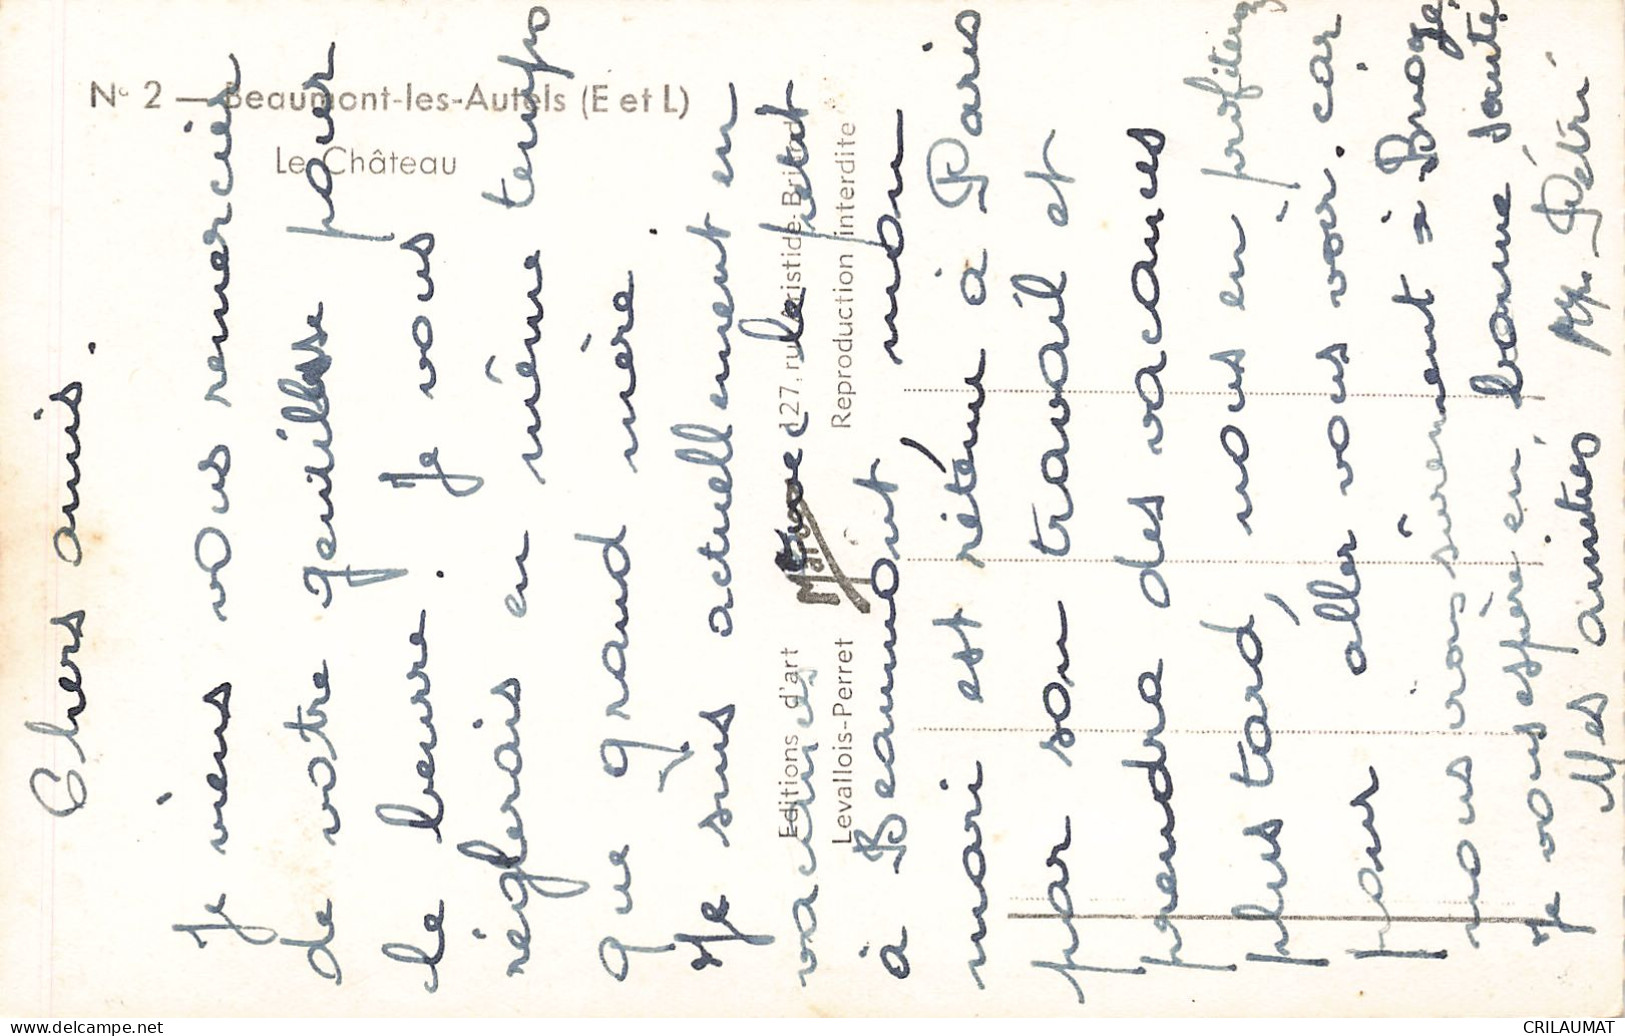 N° 2 — Beaumont-les-Autels (E et L)
Le Château
Editions d'art
Levallois-Perret
Reproduction interdite
Chers amis.
Je viens vous remercier
de votre gentillesse pour
le beurre. Je vous
réglerais en même temps
que grand mère.
Je suis actuellement en
vacances avec le petit
à Beaumont, mon
mari est réténu à Paris
par son travail et
prendra des vacances
plus tard, nous en profiterons
pour aller vous voir. car
nous irons surement à Brog
je vous espère en bonne santé
Mes amitiés M. Pétri
CRILAUMAT